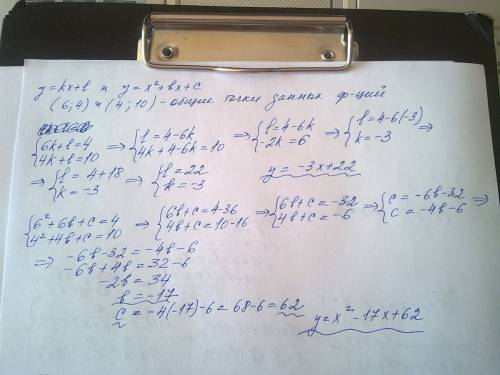 y=kx+l и y=x²+bx+c
(6;4) и (4;10) - общие точки данных ф-ций
{6k+l=4 4k+l=10 ⇒ {l=4-6k 4k+4-6k=10 ⇒ {l=4-6k -2k=6 ⇒ {l=4-6(-3) k=-3 ⇒
⇒ {l=4+18 k=-3 ⇒ {l=22 k=-3 y=-3x+22
{6²+6b+c=4 4²+4b+c=10 ⇒ {6b+c=4-36 4b+c=10-16 ⇒ {6b+c=-32 4b+c=-6 ⇒ {c=-6b-32 c=-4b-6 ⇒
⇒ -6b-32=-4b-6
-6b+4b=32-6
-2b=34
b=-17
c=-4(-17)-6=68-6=62 y=x²-17x+62